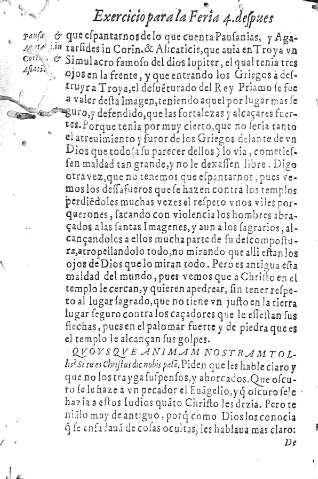 Exercicio para la Feria 4. despues
Pausa. &
Agat. in
Corin. &
Asiaticis.
que espantarnos de lo que cuenta Pausanias, y Aga-
tarsides in Corin. & Asiaticis, que auia en Troya vn
Simulacro famoso del dios Iupiter, el qual tenia tres
ojos en la frente, y que entrando los Griegos à des-
truyr a Troya, el desuẽturado del Rey Priamo se fue
a valer desta imagen, teniendo aquel por lugar mas se
guro, y defendido, que las fortalezas y alcaçares fuer-
tes. Porque tenia por muy cierto, que no seria tanto
el atreuimiento y furor de los Griegos delante de vn
Dios que todo (a su parecer dellos) lo via, cometies-
sen maldad tan grande, y no le dexassen libre. Digo
otra vez, que no tenemos que espantarnos, pues ve-
mos los desafueros que se hazen contra los templos
perdiẽdoles muchas vezes el respeto vnos viles por-
querones, sacando con violencia los hombres abra-
çados a las santas Imagenes, y aun a los sagrarios, al-
cançandoles a ellos mucha parte de su descompostu-
ra, atropellandolo todo, no mirando que alli estan los
ojos de Dios que lo miran todo. Pero es antigua esta
maldad del mundo, pues vemos que a Christo en el
templo le cercan, y quieren apedrear, sin tener respe-
to al lugar sagrado, que no tiene vn justo en la tierra
lugar seguro contra los caçadores que le assestan sus
flechas, pues en el palomar fuerte y de piedra que es
el templo le alcançan sus golpes.
QVOVSQVE ANIMAM NOSTRAM TOL-
lis? Si tu es Christus dic nobis palã. Piden que les hable claro y
que no los trayga suspensos, y ahorcados. Que oscu-
ro se le haze a vn pecador el Euãgelio, y q̃ oscuro se le
hazia a estos Iudios quãto Christo les dezia. Pero te
nianlo muy de antiguo, porq̃ como Dios los conocia
q̃ se enfadauã de cosas ocultas, les hablaua mas claro:
De